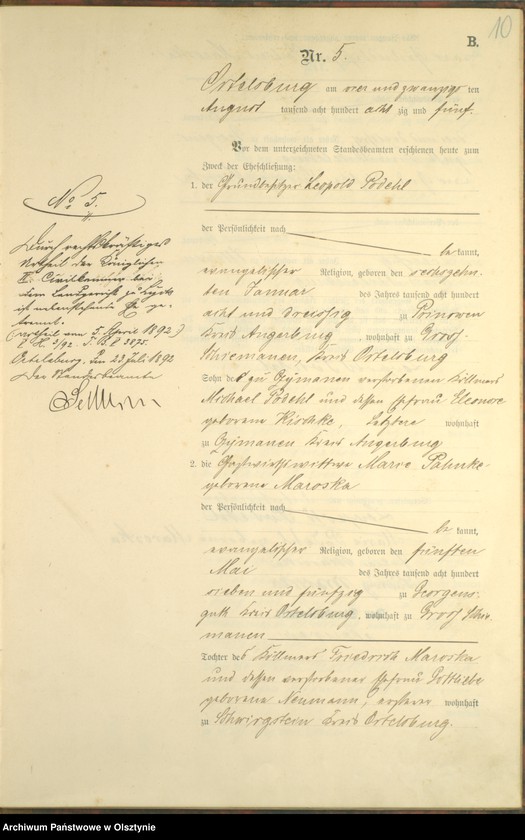 10
B.
Nr. 5.
Ortelsburg am vier und zwanzigsten
August tausend acht hundert achtzig und fünf.
Vor dem unterzeichneten Standesbeamten erschienen heute zum
Zweck der Eheschließung:
1. der Grundbesitzer Leopold Podehl
der Persönlichkeit nach
bekannt,
evangelischer Religion, geboren den sechszehn-
ten Januar des Jahres tausend acht hundert
acht und dreissig zu
Kreis Angerburg, wohnhaft zu Gross
Schiemanen, Kreis Ortelsburg
Sohn des zu verstorbenen Köllmers
Michael Podehl und dessen Ehefrau Eleonore
geborene Letztere wohnhaft
zu Kreis Angerburg
2. die Gastwirthswittwe Marie
geborene Maroska
der Persönlichkeit nach
bekannt,
evangelischer Religion, geboren den fünften
Mai des Jahres tausend acht hundert
sieben und fünfzig zu Georgens-
guth Kreis Ortelsburg, wohnhaft zu Gross Schie-
manen
Tochter des Köllmers Friedrich Maroska
und dessen verstorbener Ehefrau Gottliebe
geborene Neumann, ersterer wohnhaft
zu Schwirgstein Kreis Ortelsburg.
No 5.
Durch rechtskräftiges
Urtheil der Königlichen
II. Civilkammer bei
dem Landgericht zu Lyck
ist nebenstehende Ehe ge-
trennt.
(Urtheil vom 5. April 1892)
Ortelsburg, den 23 Juli 1892
Der Standesbeamte
Archiwum Państwowe w Olsztynie